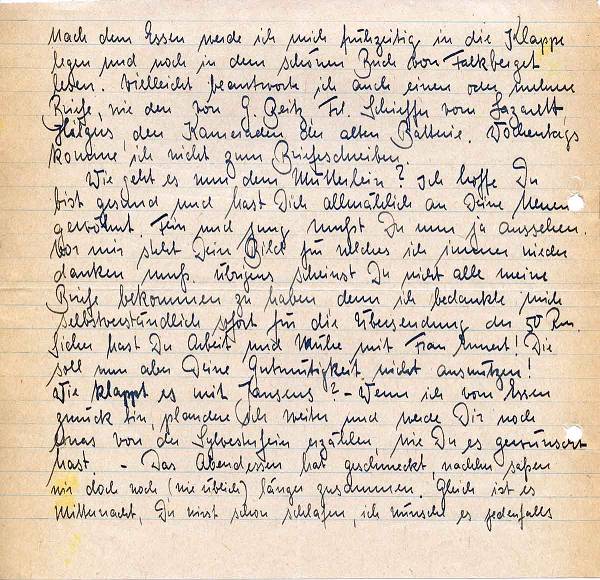 Nach dem Essen werde ich mich frühzeitig in die Klappe
legen und noch in dem schönen Buch von Falkberget
lesen. Vielleicht beantworte ich auch einen oder mehrere
Briefe, wie den von G. Beitz, Frl. Schieffer vom Lazarett,
den Kameraden der alten Batterie. Wochentags
komme ich nicht zum Briefeschreiben.
Wie geht es nun dem Mütterlein? Ich hoffe Du
bist gesund und hast Dich allmählich an Deine Neuen
gewöhnt. Fein und jung mußt Du nun ja aussehen.
Vor mir steht Dein Bild für welches ich immer wieder
danken muß. Übrigens scheinst Du nicht alle meine
Briefe bekommen zu haben denn ich bedankte mich
selbstverständlich sofort für die Übersendung der 50 Rm.
Sicher hast Du Arbeit und Mühe mit Frau Ennert! Die
soll nun aber Deine Gutmütigkeit nicht ausnutzen!
Wie klappt es mit Jansens? - Wenn ich vom Essen
zurück bin, plaudere ich weiter und werde Dir noch
etwas von der Sylvesterfeier erzählen, wie Du es gewünscht
hast. - Das Abendessen hat geschmeckt, nachher saßen
wir doch noch (wie üblich) länger zusammen. Gleich ist es
Mitternacht, Du wirst schon schlafen, ich wünsche es jedenfalls